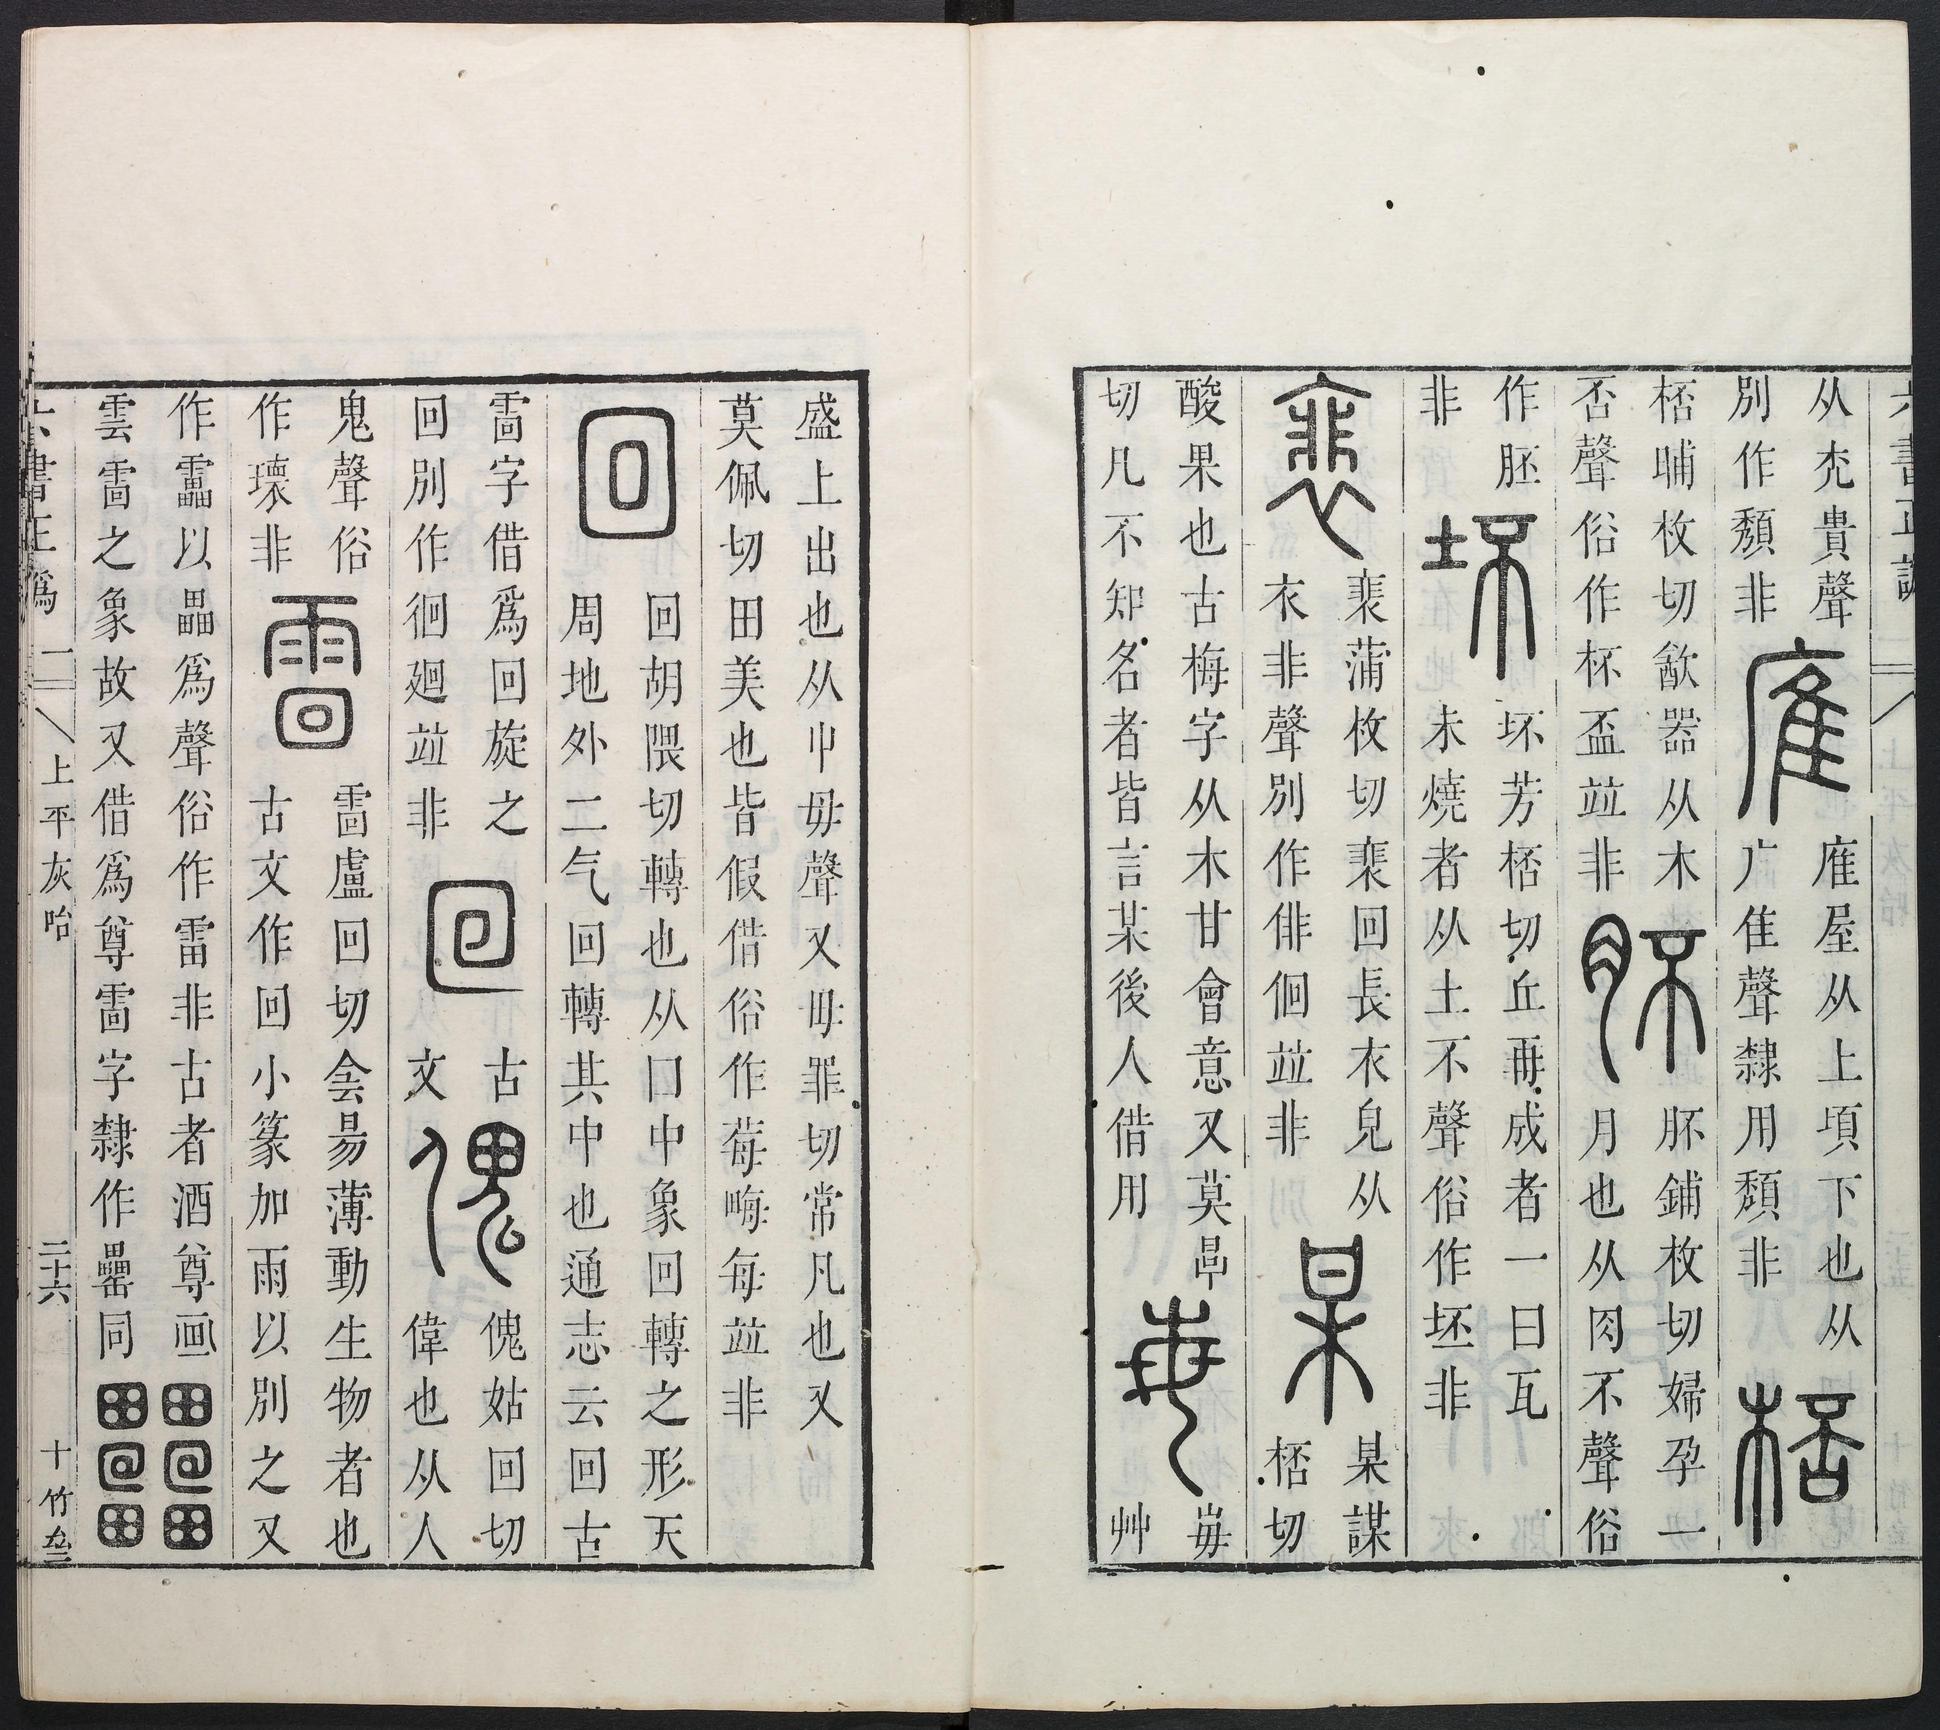 六書正譌
从禿貴聲
別作頽非
䧹
䧹屋从上頃下也从
广隹聲隸用頽非
桮
桮哺枚切歓器从木
否聲俗作杯盃竝非
肧
肧鋪枚切婦孕一
月也从肉不聲俗
作胚
非
坏
坏芳桮切丘再成者一曰瓦
未燒者从土不聲俗作坯非
裵
裵蒲枚切裵回長衣皃从
衣非聲別作俳佪竝非
某
某謀
桮切
酸果也古梅字从木甘會意又莫
切凡不知名者皆言某後人借用
每
每
艸
盛上出也从屮毋聲又毋罪切常凡也又
莫佩切田美也皆假借俗作莓畮每竝非
回
回胡隈切轉也从囗中象回轉之形天
周地外二气回轉其中也通志云回古
雷字借爲回旋之
回別作徊廻竝非
囘
古
文
傀
傀姑回切
偉也从人
鬼聲俗
作瓌非
靁
靁盧回切侌昜薄動生物者也
古文作回小篆加雨以別之又
作靁以畾爲聲俗作雷非古者酒尊画
雲靁之象故又借爲尊靁字隸作罍同
六書正譌
上平灰咍
二十六
十竹